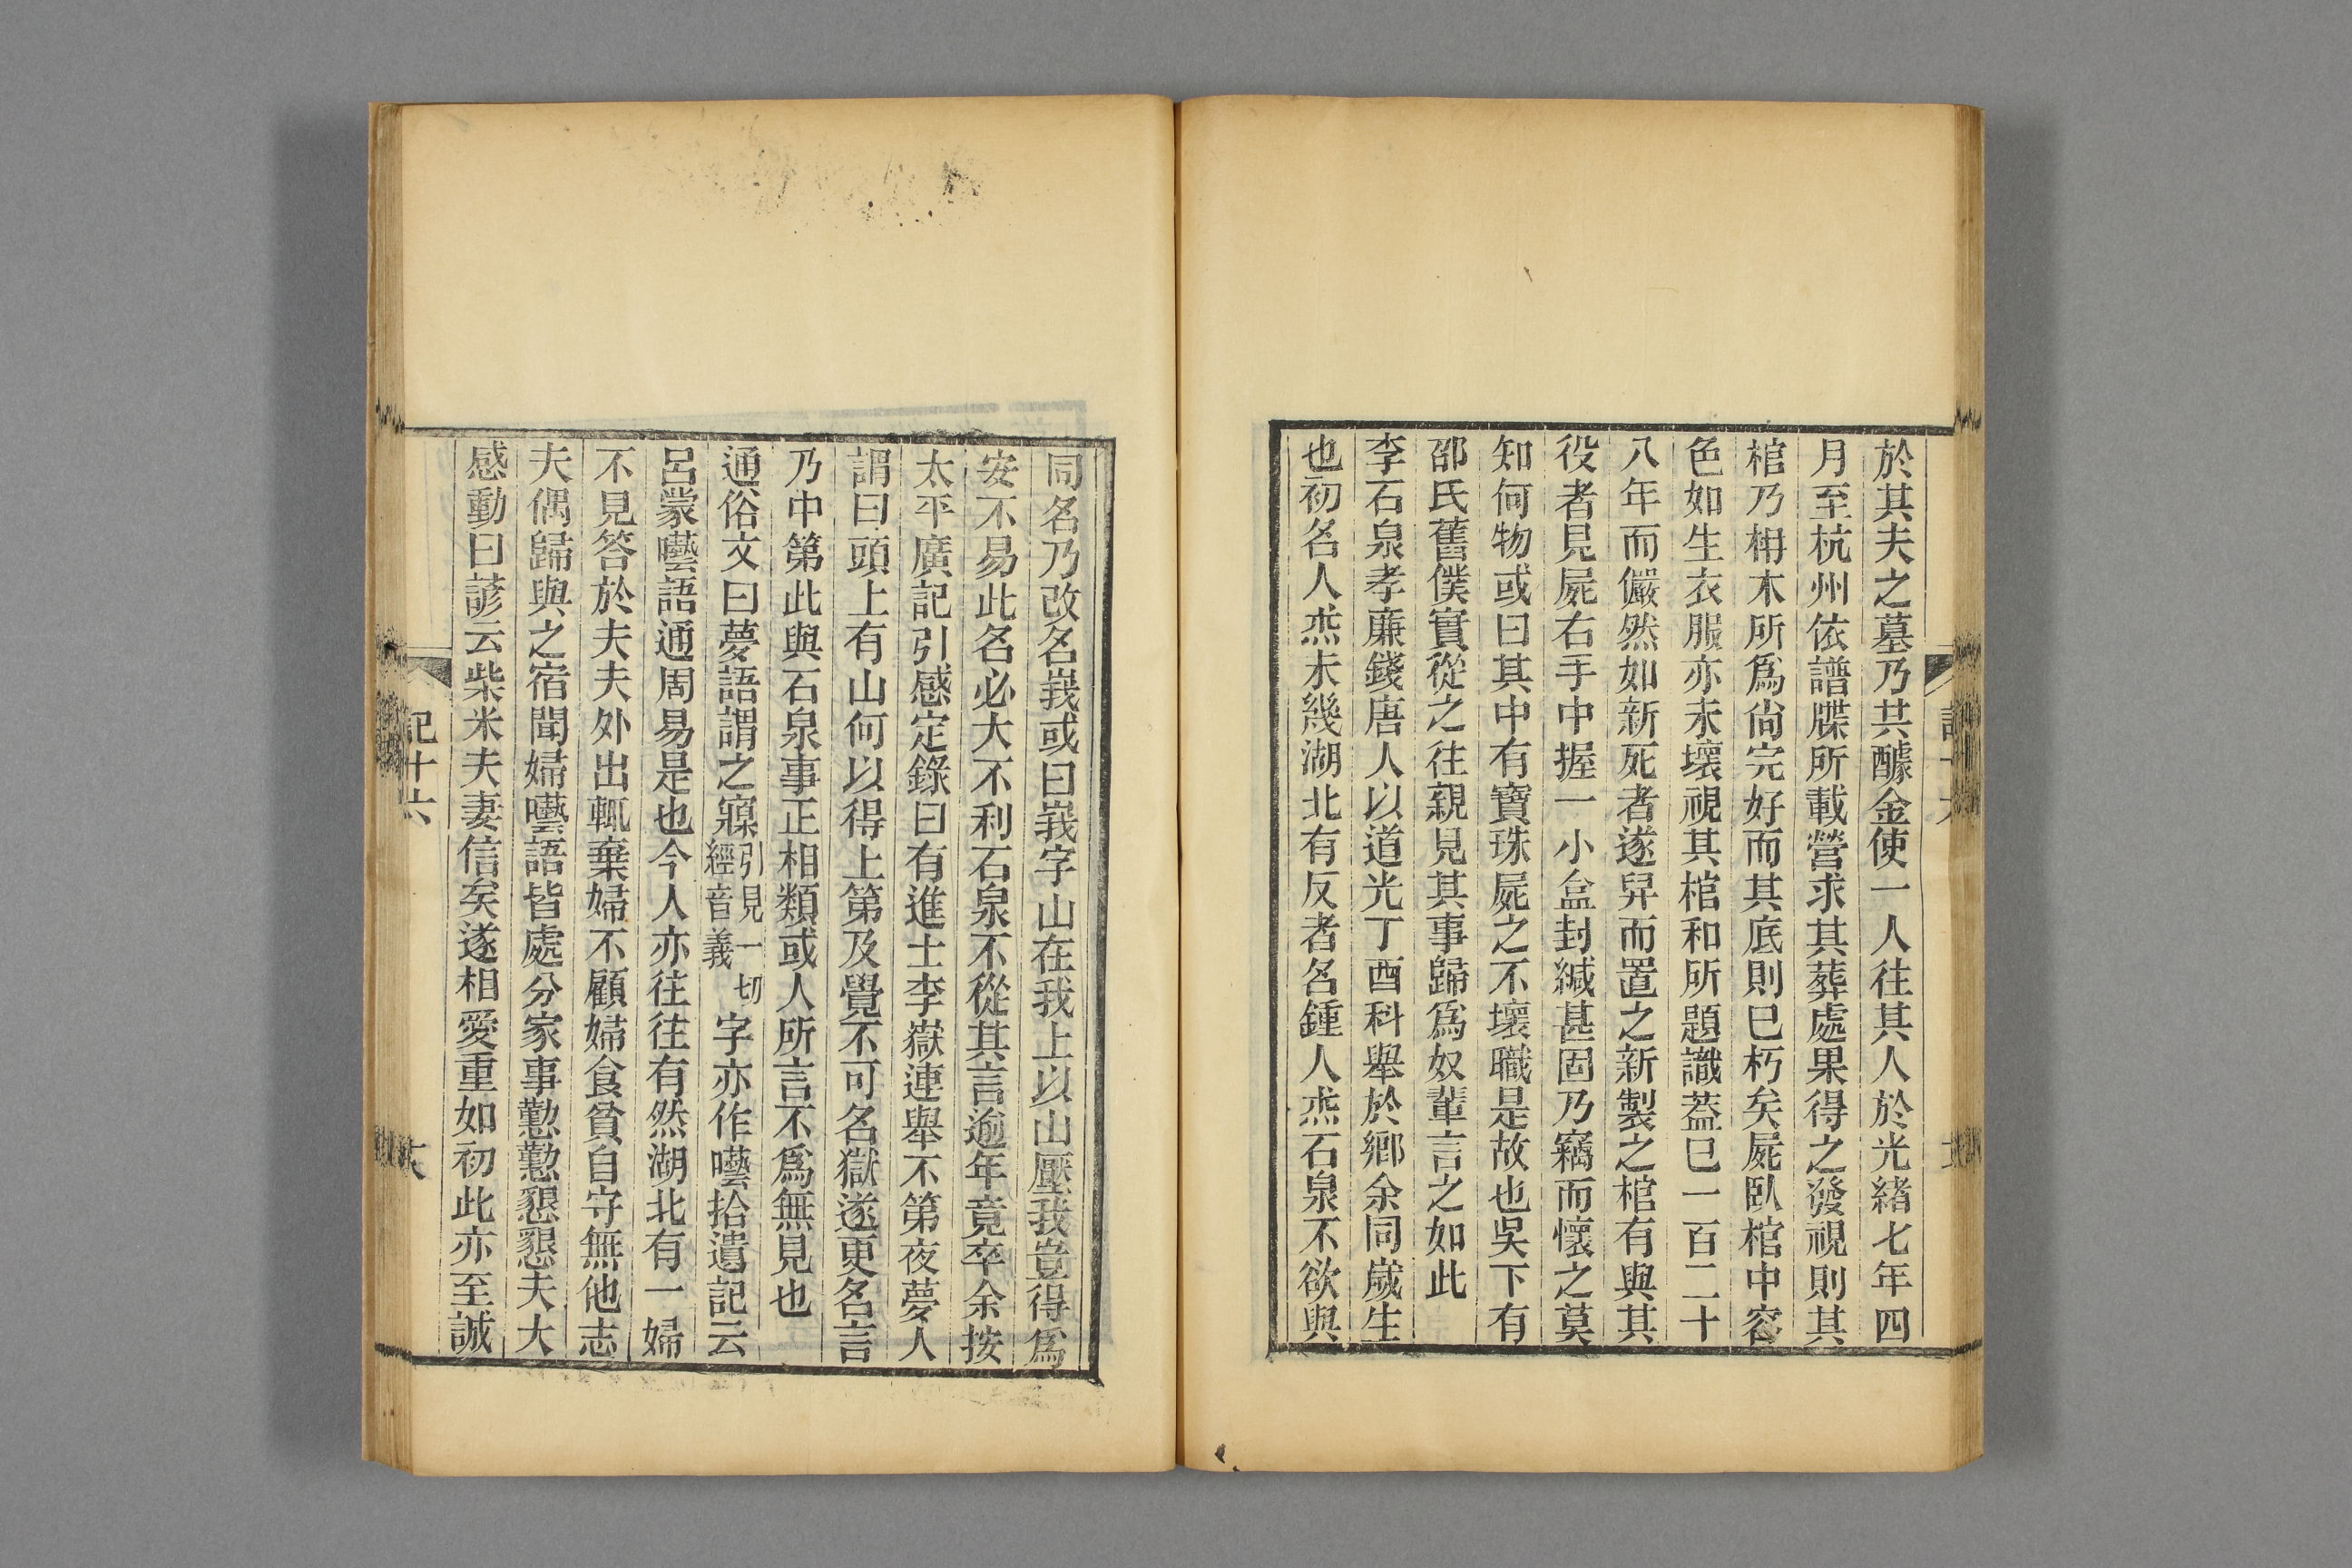 於其夫之墓乃共醵金使一人往其人於光緒七年四
月至杭州依譜牒所載營求其葬處果得之發視則其
棺乃枏木所爲尙完好而其底則已朽矣屍臥棺中容
色如生衣服亦未壞視其棺和所題識葢已一百二十
八年而儼然如新死者遂舁而置之新製之棺有與其
役者見屍右手中握一小盒封緘甚固乃竊而懷之莫
知何物或曰其中有寶珠屍之不壞職是故也吳下有
邵氏舊僕實從之往親見其事歸爲奴輩言之如此
李石泉孝廉錢唐人以道光丁酉科舉於鄉余同歲生
也初名人烝未幾湖北有反者名鍾人烝石泉不欲與
同名乃改名峩或曰峩字山在我上以山壓我豈得爲
安不易此名必大不利石泉不從其言逾年竟卒余按
太平廣記引感定錄曰有進士李嶽連舉不第夜夢人
謂曰頭上有山何以得上第及覺不可名獄遂更名言
乃中第此與石泉事正相類或人所言不爲無見也
通俗文曰夢語謂之㝱引見一切經音義字亦作囈拾遺記云
呂蒙囈語通周易是也今人亦往往有然湖北有一婦
不見答於夫夫外出輒棄婦不顧婦食貧自守無他志
夫偶歸與之宿聞婦囈語皆處分家事懃懃懇懇夫大
感動曰諺云柴米夫妻信矣遂相愛重如初此亦至誠
記十六